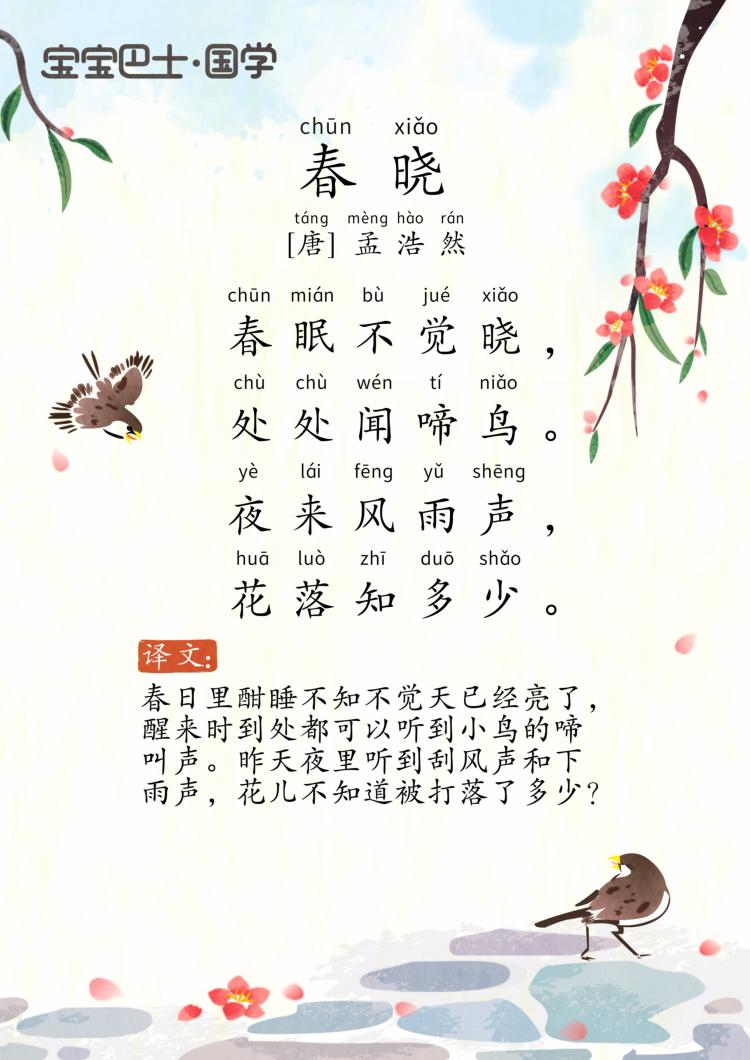 宝宝巴士·国学
chūn xiǎo
春晓
táng mèng hào rán
[唐] 孟浩然
chūn mián bù jué xiǎo
春眠不觉晓，
chù chù wén tí niǎo
处处闻啼鸟。
yè lái fēng yǔ shēng
夜来风雨声，
huā luò zhī duō shǎo
花落知多少。
译文：
春日里酣睡不知不觉天已经亮了，
醒来时到处都可以听到小鸟的啼
叫声。昨天夜里听到刮风声和下
雨声，花儿不知道被打落了多少？